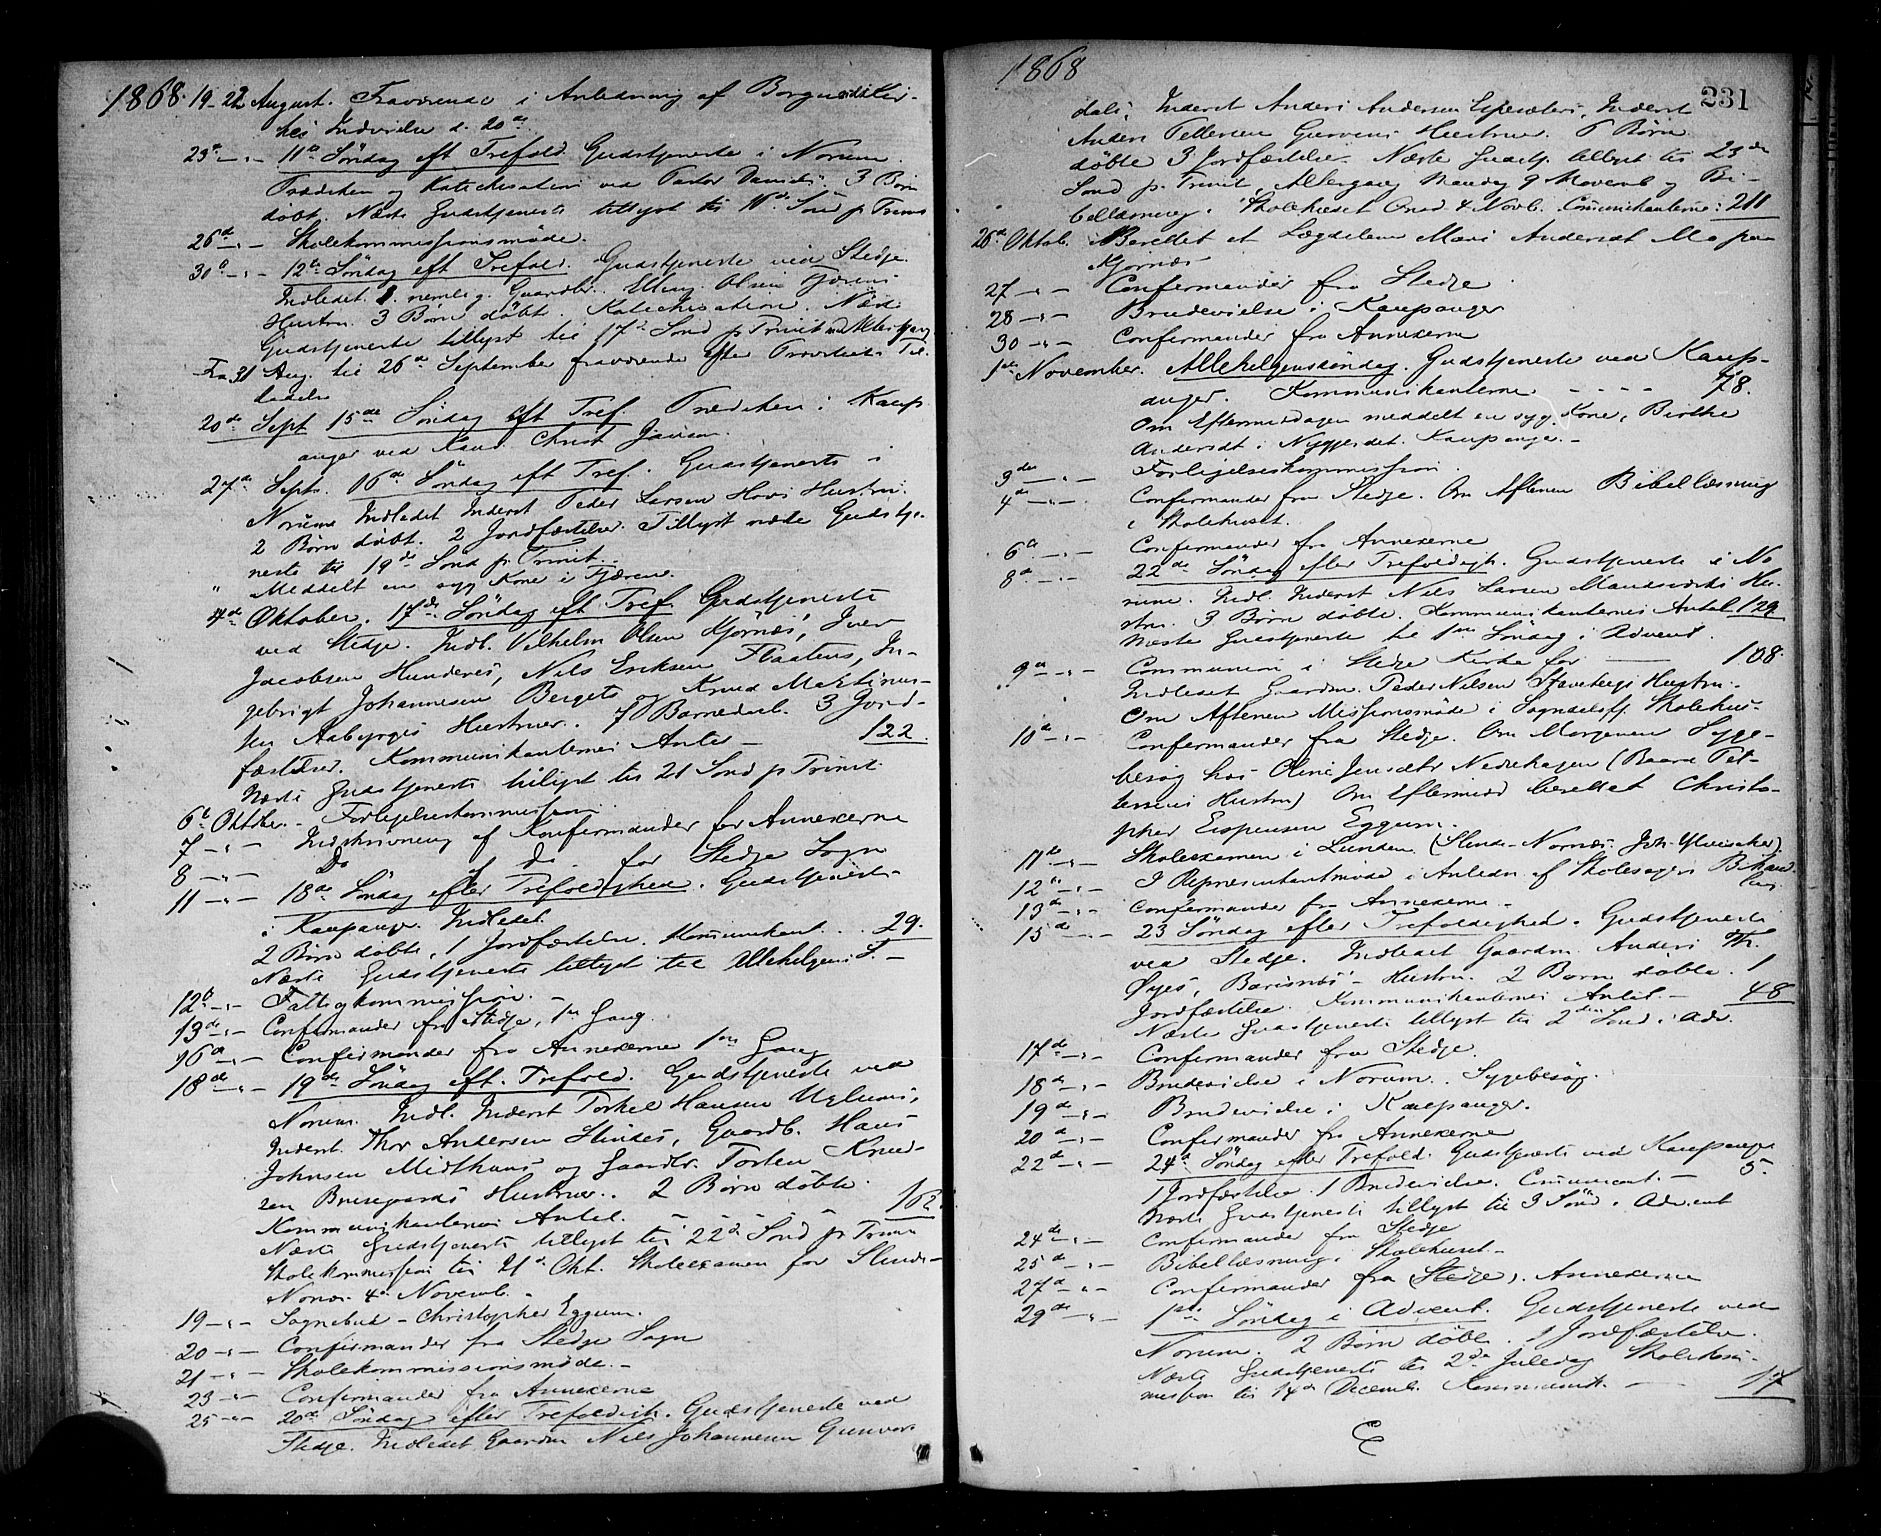 1868. 19-22 August. Fraværende i Anledning af Borgunds Kir-
kes Indvielse d. 20de
23de —„— 11te Söndag eft Trefold. Gudstjeneste i Norum.
Prædiken og Katechisation ved Pastor Daniels. 3 Börn
döbt. Næste Gudstjeneste tillyst til Sönd p. Trinit
26de —„— Skolekommissionsmöde.
30te —„— 12te Söndag eft Trefold. Gudstjeneste ved Stedje.
Indledet nemlig. Gaardbr. Elling Olsen Fjærens
Hustru. 3 Börn döbt. Katechisation. Næste
Gudstjeneste tillyst til 17de Sönd p Trinit med Altergang
Fra 31 Aug. til 26de September fraværende efter Provstiets Til-
ladelse
20de Sept 15de Söndag eft Tref. Prædiken i Kaup-
anger ved Kand. Christ Jansen.
27de Septr. 16de Söndag eft Tref. Gudstjeneste i
Norum Indledet Inderst Peder Larsen Hovs Hustru.
2 Börn döbt. 2 Jordfæstelser. Tillyst næste Gudstje-
neste til 19de Sönd p. Trinit.
„ Meddelt en syg Kone i Fjærene.
4de Oktober. 17de Söndag eft Tref. Gudstjeneste
ved Stedje. Indl. Vilhelm Olsen Kjörnæs, Iver
Jacobsen Hundere, Nils Eriksen Flaatens, In-
gebrigt Johannesen Bergets og Knud Mektinus-
sen Aabyrges Hustruer. 7 Barnedaab. 3 Jord-
fæstelser. Kommunikanternes Antal — 122.
Næste Gudstjeneste tillyst til 21 Sönd p Trinit
6te Oktober. — Forligelseskommission
7 —„— Indskrivning af Konfirmander for Annexerne
8 —„— Do af do for Stedje Sogn
11 —„— 18de Söndag efter Trefoldighed. Gudstjeneste
i Kaupanger. Indledet
2 Börn döbte, 1 Jordfæstelse. Kommunikant. . 29.
Næste Gudstjeneste tillyst til Allehelgens S. —
12te —„— Fattigkommission. —
13de —„— Confirmander fra Stedje, 1ste Gang.
16de —„— Confirmander fra Annexerne 1ste Gang
18de —„— 19de Söndag eft. Trefold. Gudstjeneste ved
Norum. Indl. Inderst Torkel Hansen Uglums,
Inderst. Thor Andersen Slindes, Gaardb. Hans
Johnsen Midthuns og Gaardbr. Torsten Knud-
sen Brusegaards Hustruer. 2 Börn döbte.
Kommunikanternes Antal. — — — 162
Næste Gudstjeneste tillyst til 22de Sönd p Trinit
Skolekommission til 21de Okt. Skoleexamen for Slinde-
Nornæs 4de Novemb. —
19 —„— Sognebud — Christopher Eggum.
20 —„— Confirmander fra Stedje Sogn
21 —„— Skolekommissionsmöde. —
23 —„— Confirmander fra Annexerne
25 —„— 20de Söndag efter Trefoldigh. Gudstjeneste ved
Stedje. Indledet Gaardm Nils Johannesen Gunvor-
1868
231
dals, Inderst Anders Andersen Espesæters, Inderst
Anders Pettersen Gurvens Hustruer. 6 Börn
döbte 3 Jordfæstelser. Næste Gudstj. tillyst til 23de
Sönd p. Trinit, Altergang Mandag 9 Novemb og Bi-
bellæsning i Skolehuset Onsd 4 Novb. Communikanterne: 211
26de Oktob. Berettet et Lægdslem Mari Andersdt Mo paa
Kjörnæs
27 —„— Confirmander fra Stedje
28 —„— Brudevielse i Kaupanger
30 —„— Confirmander fra Annexerne
1ste November. Allehelgenssöndag. Gudstjeneste ved Kaup-
anger. Kommunikanterne — — — — 78.
Om Eftermiddagen meddelt en syg Kone, Birthe
Andersdt i Nyggjerdet. Kaupanger. —
3die —„— Forligelseskommission.
4de —„— Confirmander fra Stedje. Om Aftenen Bibellæsning
i Skolehuset.
6te —„— Confirmander fra Annexerne
8de —„— 22de Söndag efter Trefoldigh. Gudstjeneste i No-
rum. Indl. Inderst Nils Larsen Hu-
stru. 3 Börn döbte. Kommunikanternes Antal 129
Næste Gudstjeneste til 1ste Söndag i Advent.
9de —„— Communion i Stedje Kirke for — 108.
Indledet Gaardm. Peder Nilsen Stavebergs Hustru.
Om Aftenen Missionsmöde i Sogndalsfj. Skolehus.
10de —„— Confirmander fra Stedje. Om Morgenen Syge-
besög hos Oline Jensdtr Nedrehagen (Baard Pet-
tersens Hustru) Om Eftermidd berettet Christo-
pher Espensen Eggum.
11te —„— Skoleexamen i Lunden (Slinde-Nornæs. Joh. Ylvisaker)
12te —„— I Repræsentantmöde i Anledn. af Skolesagens Behand-
ling.
13de —„— Confirmander fra Annexerne. —
15de —„— 23 Söndag efter Trefoldighed. Gudstjeneste
ved Stedje. Indledet Gaardm Anders Th.
Öyes, Barsnæs Hustru. 2 Börn döbte. 1
Jordfæstelse. Kommunikanternes Antal. — 48
Næste Gudstjeneste tillyst til 2den Sönd. i Adv.
17de —„— Confirmander fra Stedje.
18de —„— Brudevielse i Norum. Sygebesög.
19de —„— Brudevielse i Kaupanger.
20de —„— Confirmander fra Annexerne
22de —„— 24de Söndag efter Trefold. Gudstjeneste ved Kaupanger
1 Jordfæstelse. 1 Brudevielse. Communik. — 5.
Næste Gudstjeneste tillyst til 3 Sönd. i Advent
24de —„— Confirmander fra Stedje
25de —„— Bibellæsning i Skolehuset. —
27de —„— Confirmander fra (Stedje). Annexerne
29de —„— 1ste Söndag i Advent. Gudstjeneste ved
Norum. 2 Börn döbt. 1 Jordfæstelse.
Næste Gudstjeneste til 2den Juledag Skolekom-
mission til 14de Decemb. Kommunik. — 17